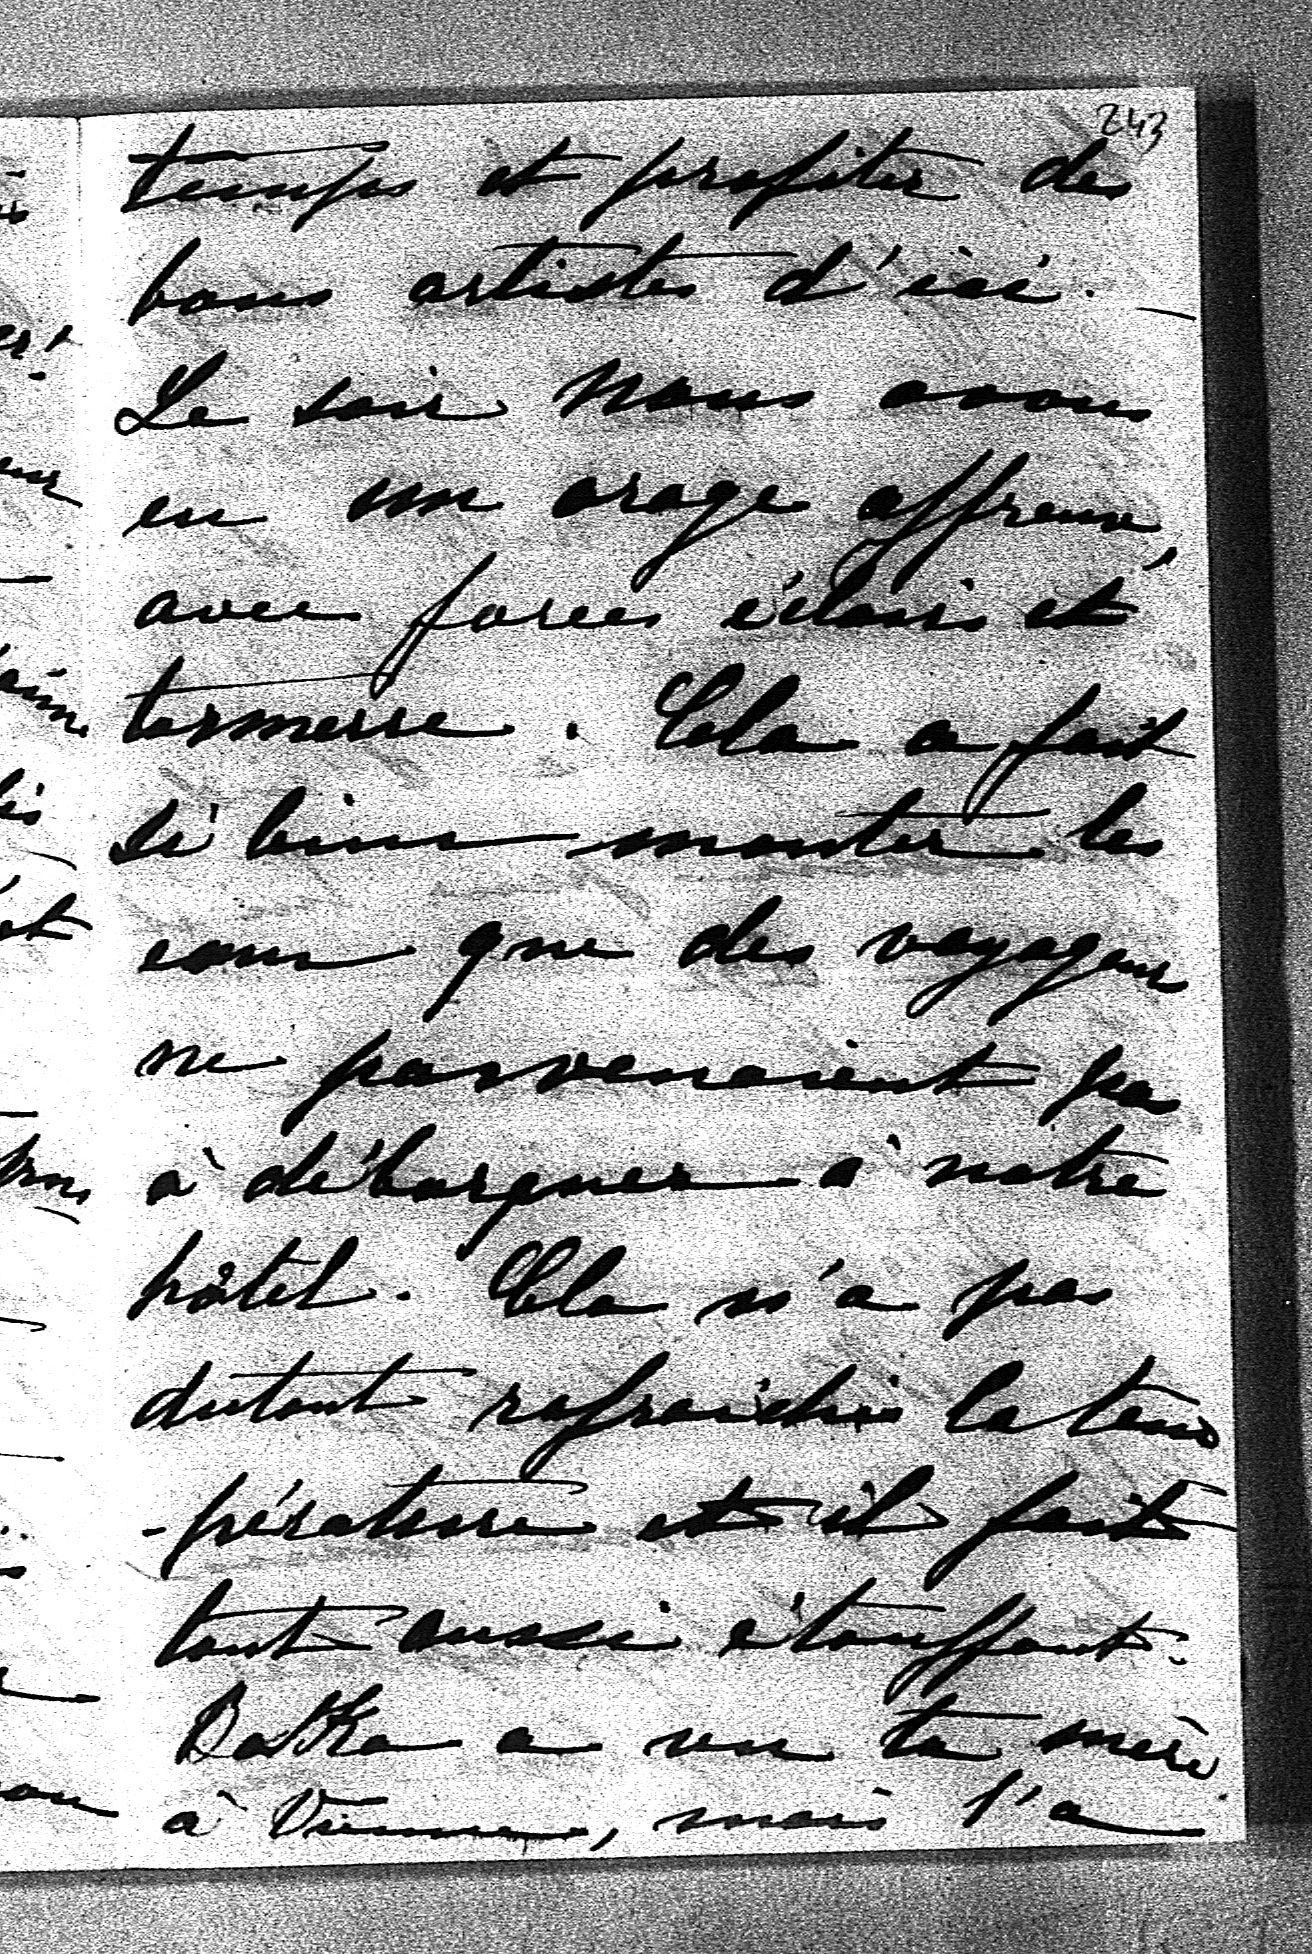 243
temps et profiter des
bons artistes d'ici. —
Le soir nous avons
eu un orage affreux,
avec forces éclairs et
tonnerre. Cela a fait
si bien monter les
eaux que des voyageurs
ne parvenaient pas
à débarquer à notre
hôtel. Cela n'a pas
dutout rafraichi la tem
-pérature et il fait
tout aussi étouffant.
Batka a vu ta mère
à Vienne, mais l'a